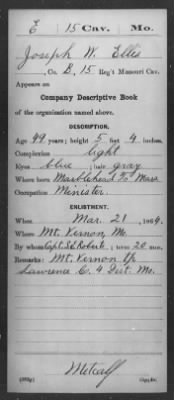 E 15 Cav. Mo.
Joseph W. Ellis
, Co. B, 15 Reg't Missouri Cav.
Appears on
Company Descriptive Book
of the organization named above.
DESCRIPTION.
Age 49 years; height 5 feet 4 inches.
Complexion light
Eyes blue; hair gray
Where born Marblehead Mass
Occupation Minister.
ENLISTMENT.
When Mar. 21, 1864.
Where Mt. Vernon, Mo.
By whom Capt. S.E. Roberts; term 20 mos.
Remarks: Mt. Vernon
Lawrence C. 4 Dist. Mo.
Metcalf
Copyist.